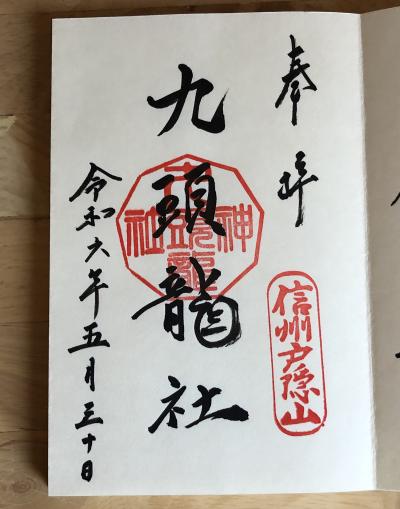 奉拝
信州戸隠山
九頭龍社
令和六年五月三十日